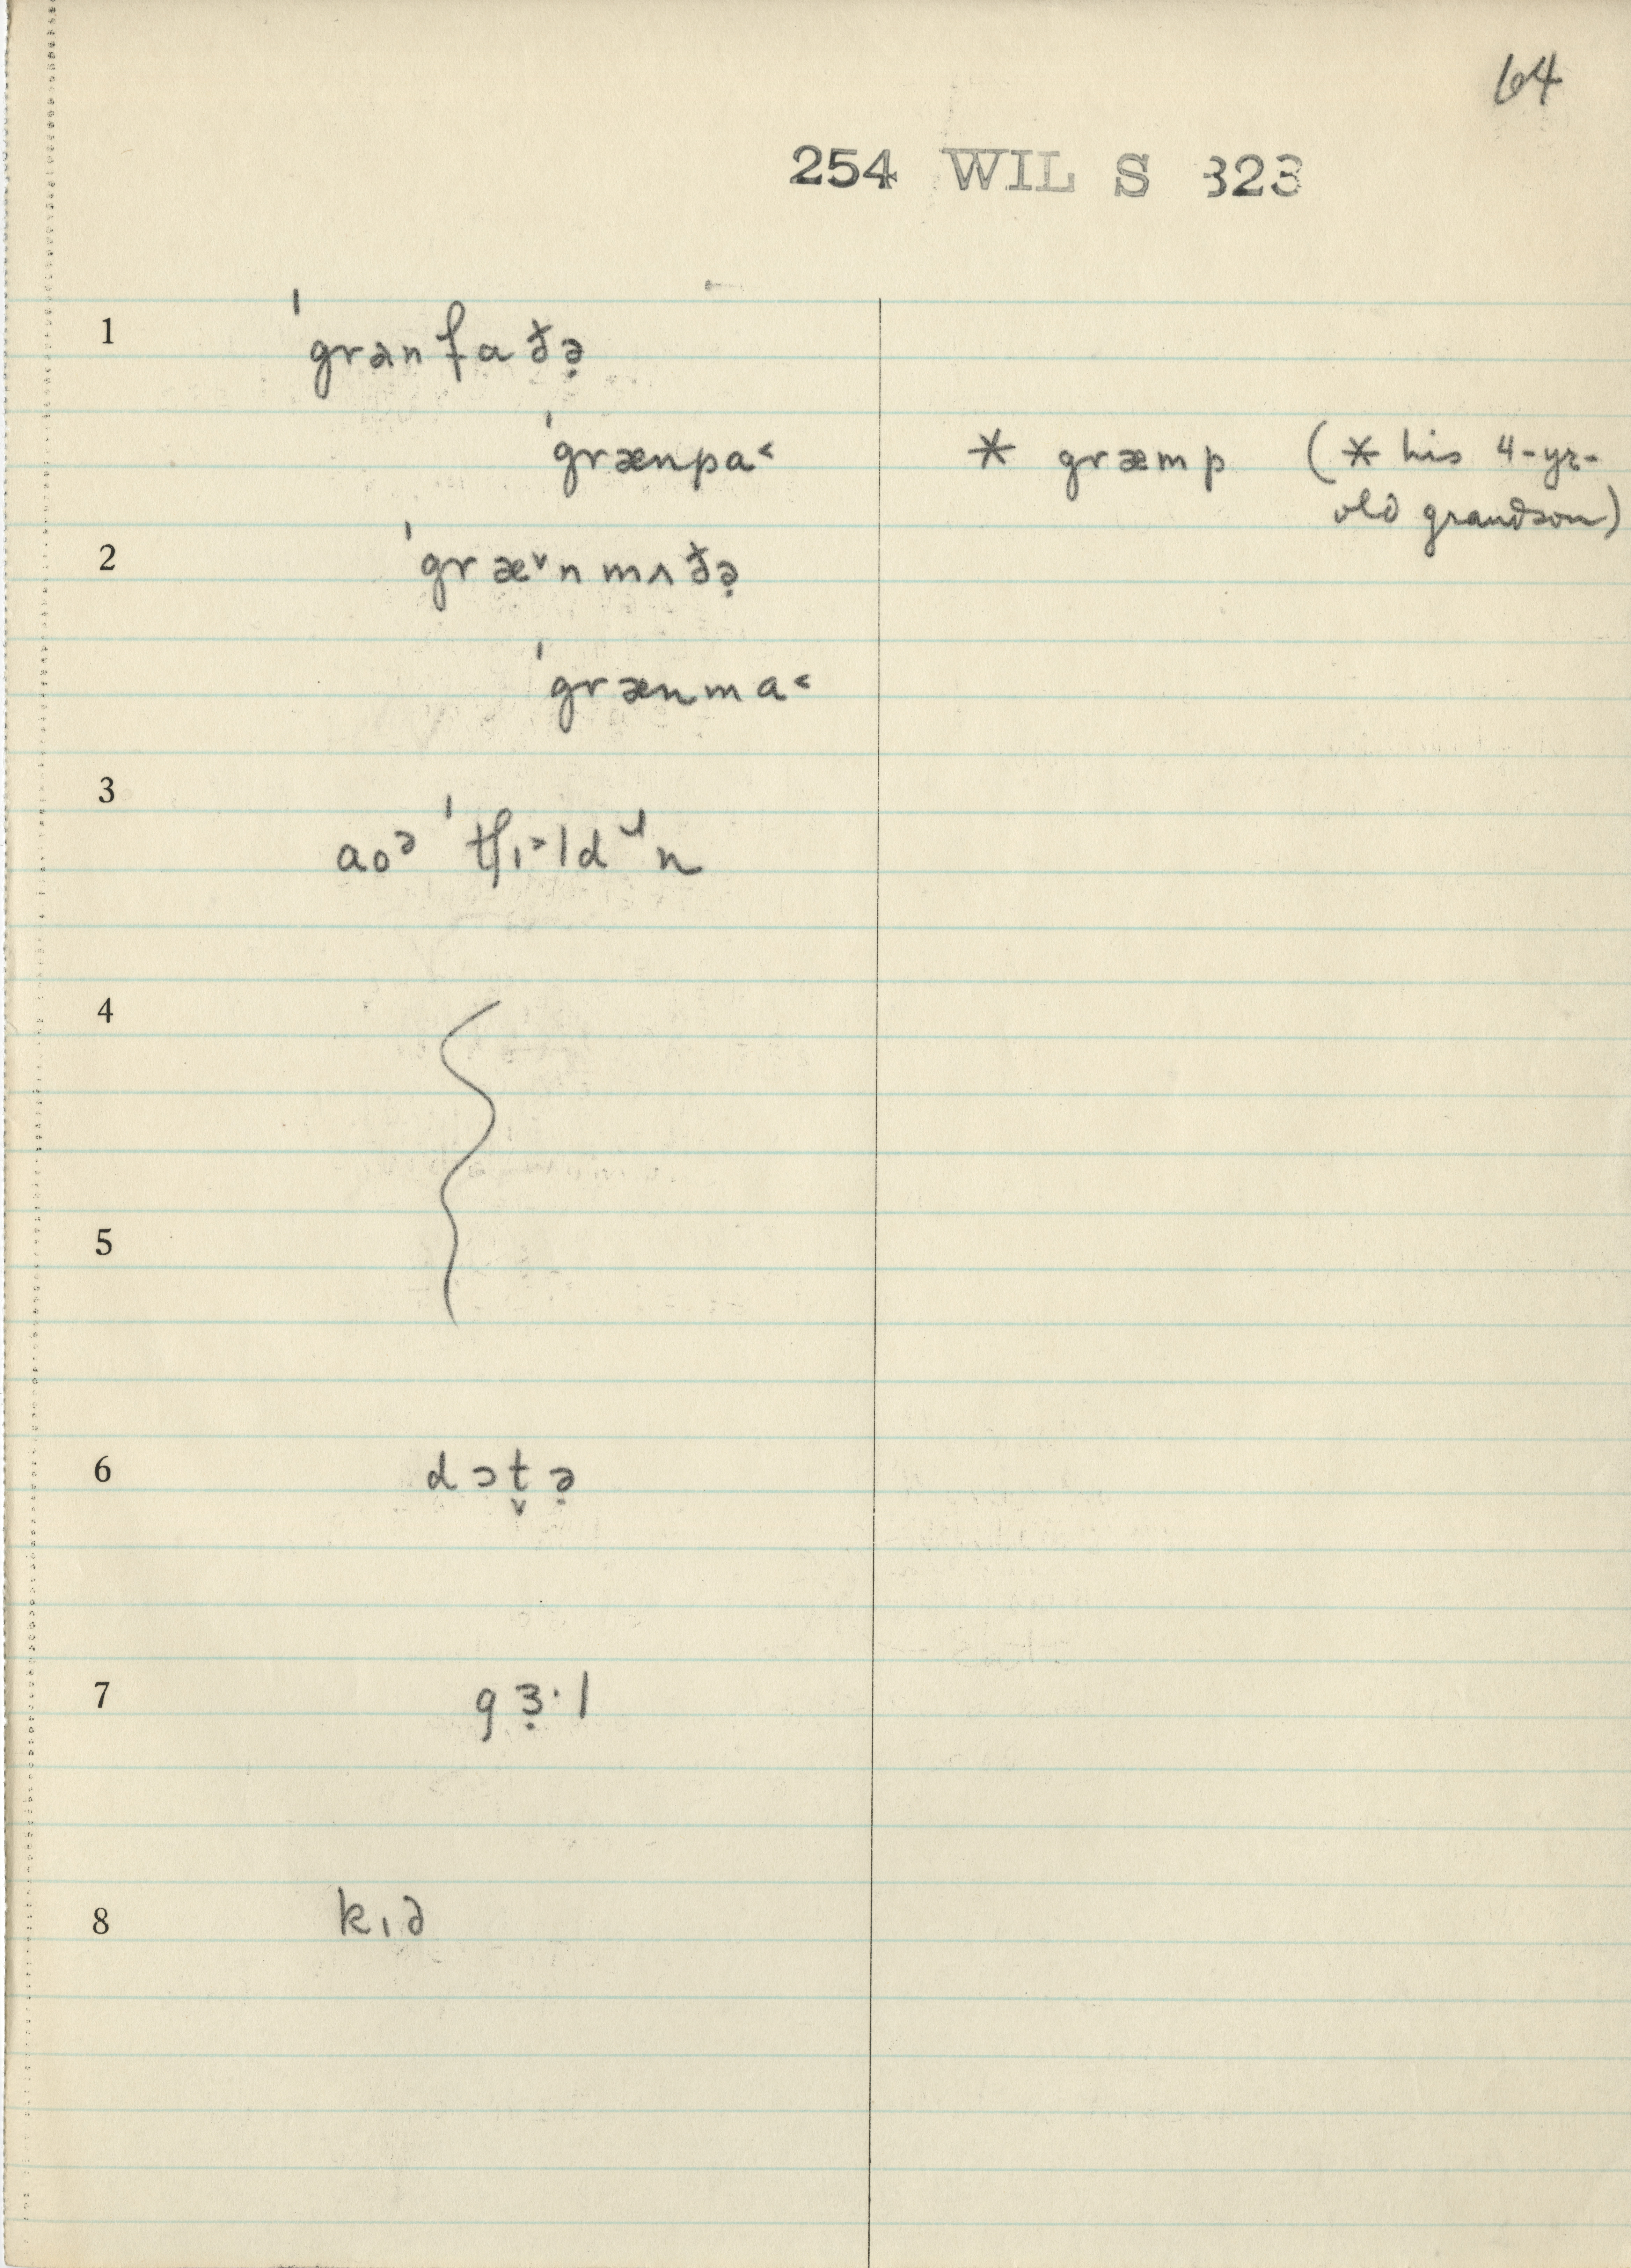 64
254 WIL S 323
1 ˈgranfaðə̣
ˈgrænpa˂ * græmp (* his 4-yr-
old grandson)
2 ˈgræ˅nmʌðə̣
ˈgrænma˂
3 aoᵊ ˈtʃɪ˃ldɹn
4
5
6 dɔt̬ə̣
7 gɜ̣·l
8 kɪd